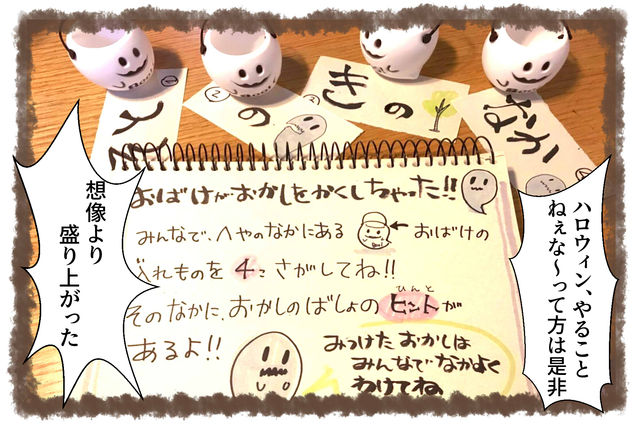 ハロウィン、やること
ねぇな〜って方は是非
①
②の
きの
なか
おばけがおかしをかくしちゃった!!
みんなで、へやのなかにある ← おばけの
れものを 4こ さがしてね!!
そのなかに、おかしのばしょの
ひんと
ヒントが
あるよ!!
みつけたおかしは
みんなでなかよく
わけてね
想像より
盛り上がった